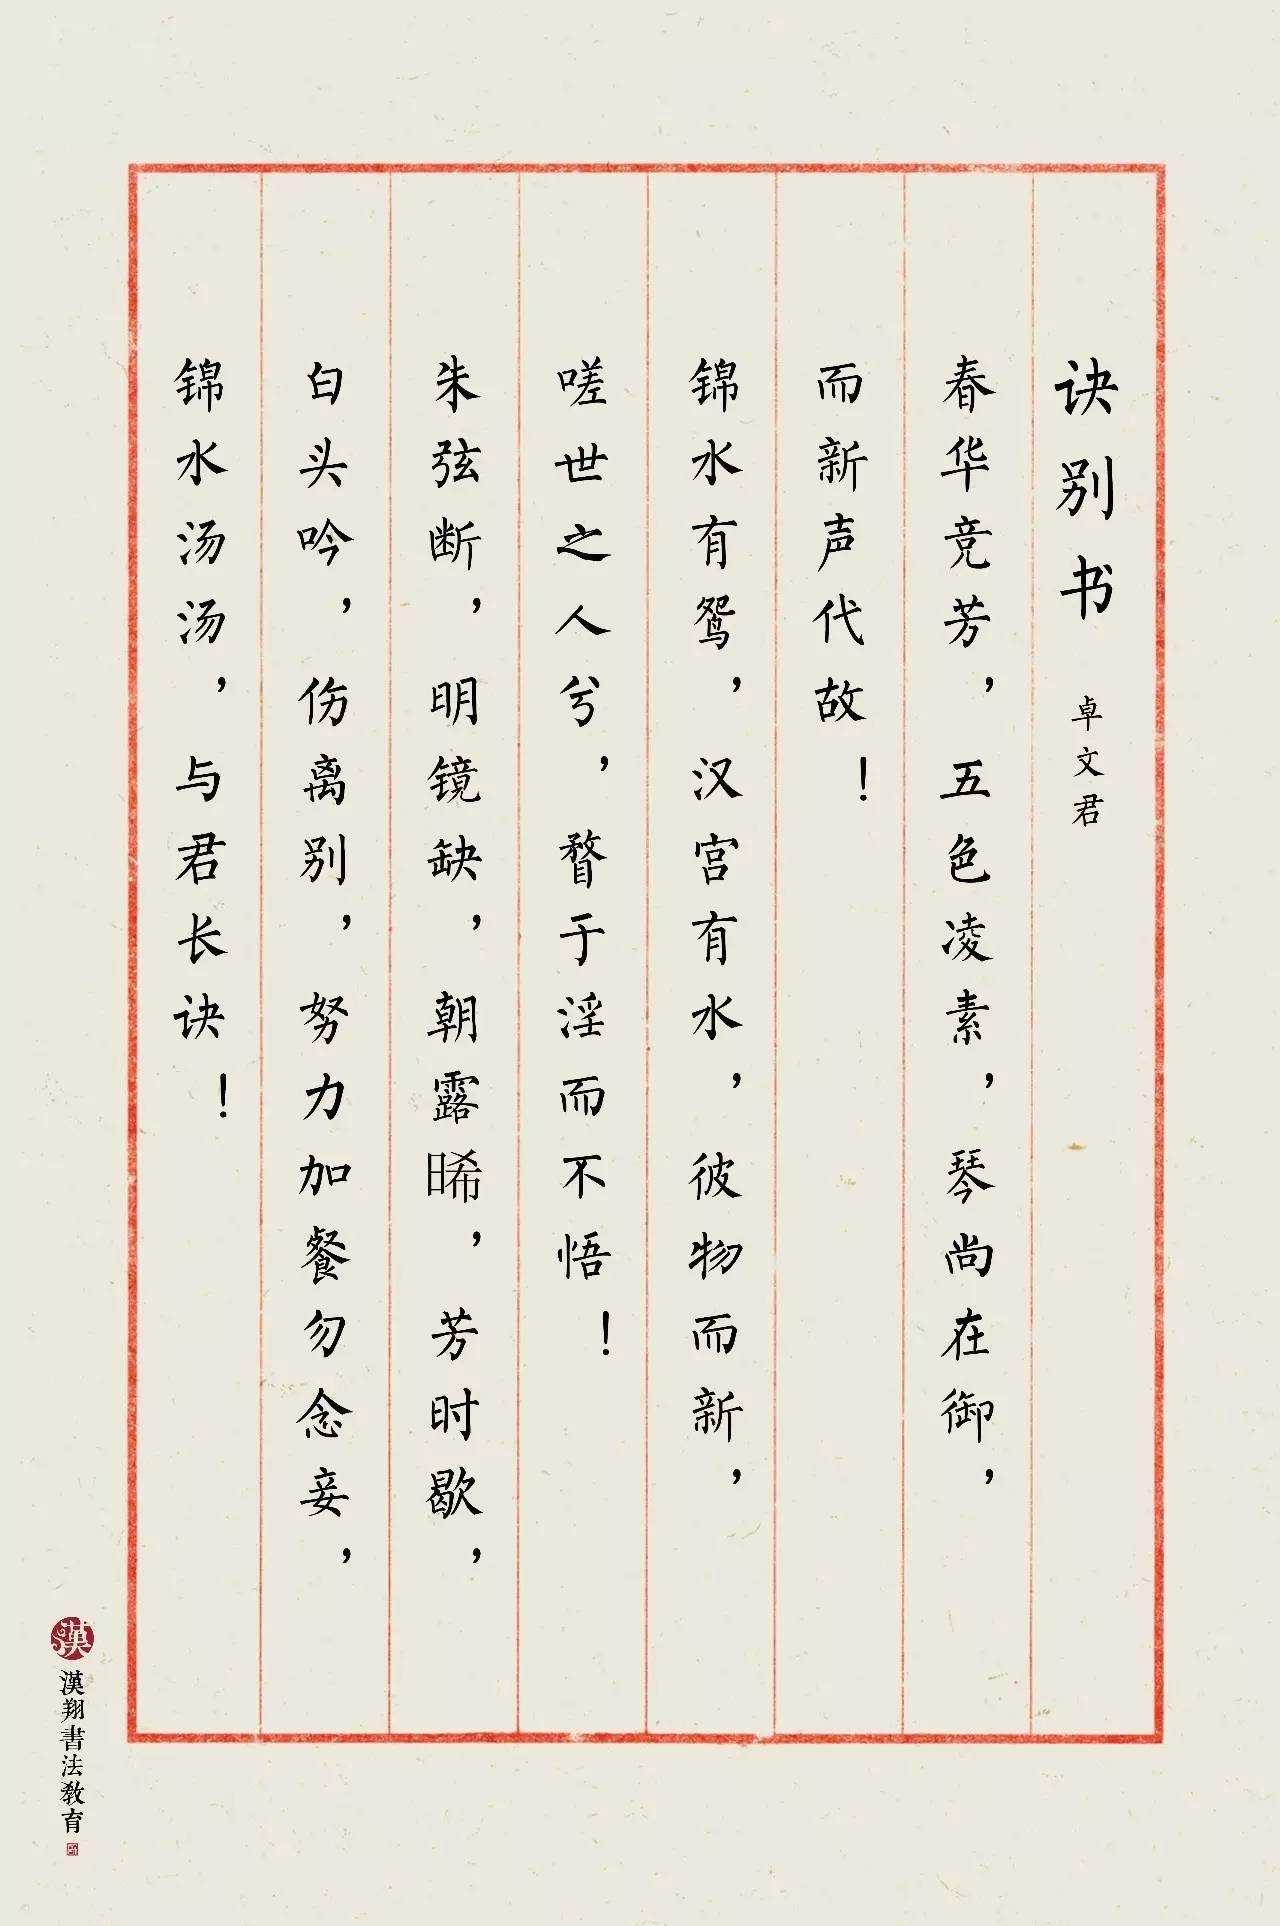 诀别书 卓文君
春华竞芳，五色凌素，琴尚在御，
而新声代故！
锦水有鸳，汉宫有水，彼物而新，
嗟世之人兮，瞀于淫而不悟！
朱弦断，明镜缺，朝露晞，芳时歇，
白头吟，伤离别，努力加餐勿念妾，
锦水汤汤，与君长诀！
漢
漢翔書法教育